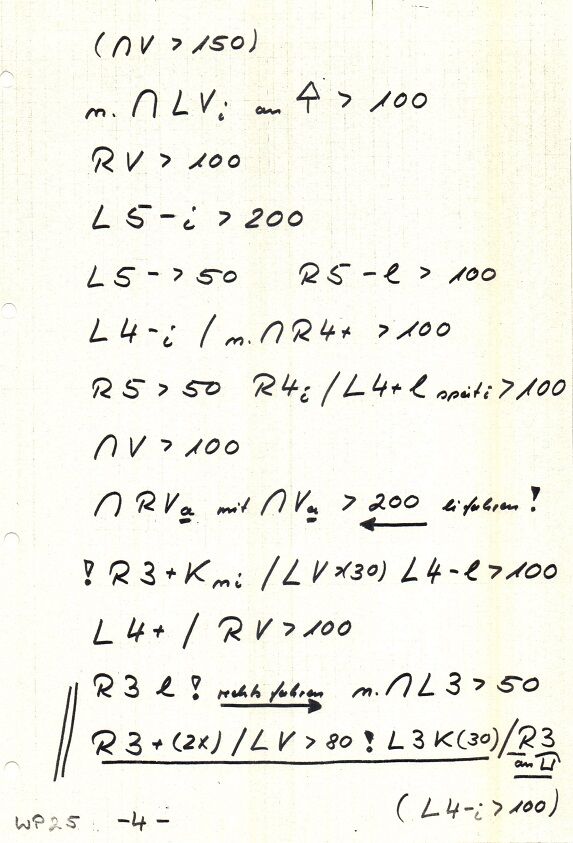 (∩V > 150)
n. ∩ L V i an ⇧ > 100
R V > 100
L 5 - i > 200
L 5 - > 50 R 5 - l > 100
L 4 - i / n. ∩ R 4 + > 100
R 5 > 50 R 4 i / L 4 + l spät i > 100
∩ V > 100
∩ R V a mit ∩ V a > 200 lifahren !
! R 3 + K mi / L V > (30) L 4 - l > 100
L 4 + / R V > 100
R 3 l ! rechts fahren n. ∩ L 3 > 50
R 3 + (2x) / L V > 80 ! L 3 K (30) / R 3
an
(L 4 - i > 100)
WP25 - 4 -